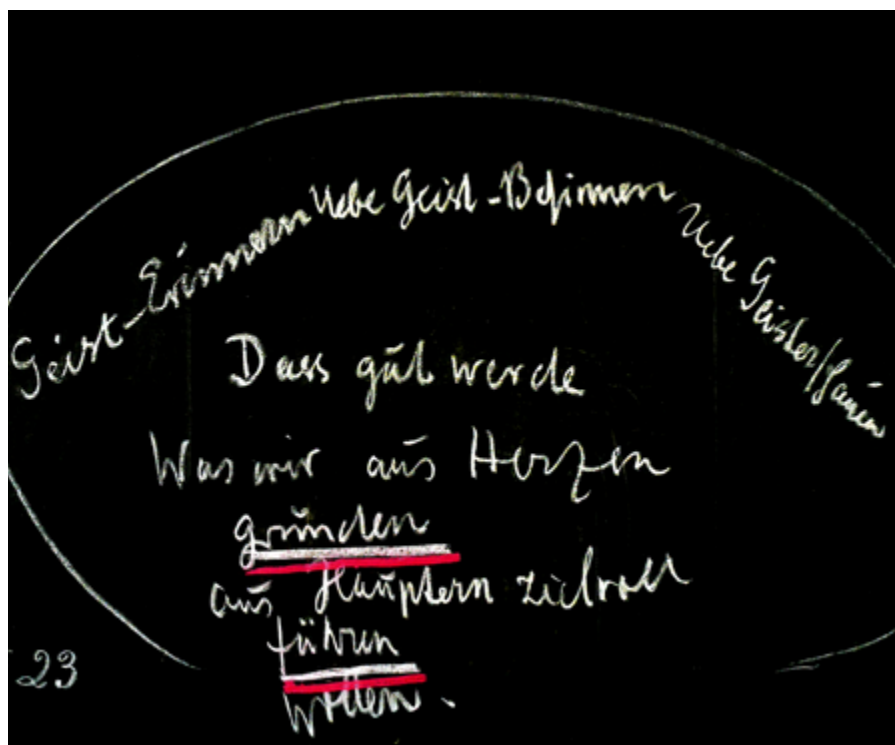 Geist-Erinnern
Uebe Geist-Besinnen
Uebe Geister/chauen
Dass gut werde
Was wir aus Herzen
gründen
aus Häuptern zielvoll
führen
wollen.
23